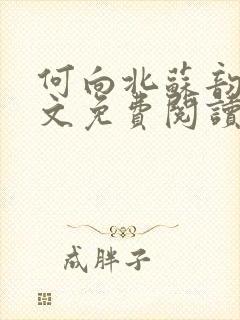 何向北蘇韵
文免費閱讀
成胖子